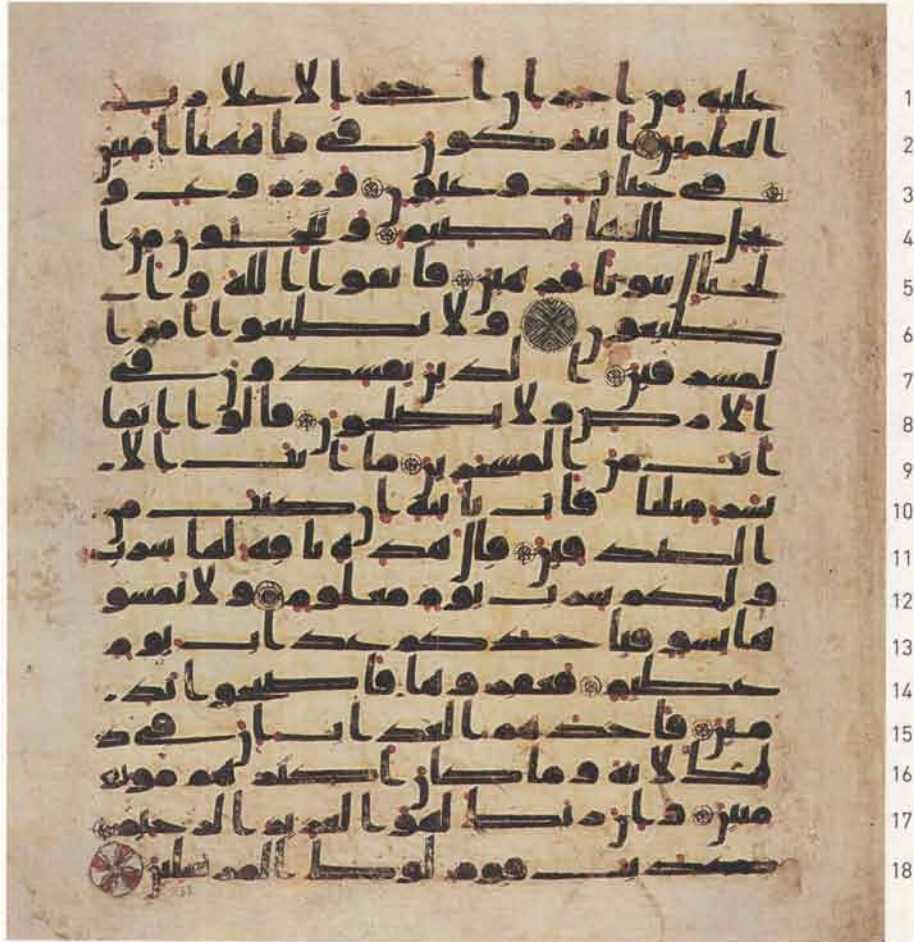 عليه من اجر ان اجرى الا على رب 1
العلمين اتتركون فى ما ههنا امنين 2
فى جنات وعيون وزروع و 3
نخل طلعها هضيم وتنحتون من ا 4
لجبال بيوتا فرهين فاتقوا الله وا 5
طيعون ولا تطيعوا امر ا 6
لمسرفين الذين يفسدون فى 7
الارض ولا يصلحون قالوا انما 8
انت من المسحرين ما انت الا 9
بشر مثلنا فات باية ان كنت من 10
الصدقين قال هذه ناقة لها شرب 11
ولكم شرب يوم معلوم ولا تمسو 12
ها بسوء فياخذكم عذاب يوم 13
عظيم فعقروها فاصبحوا ند 14
مين فاخذهم العذاب ان فى ذ 15
لك لاية وما كان اكثرهم مو 16
منين وان ربك لهو العزيز الرحيم 17
كذبت قوم لوط المرسلين 18